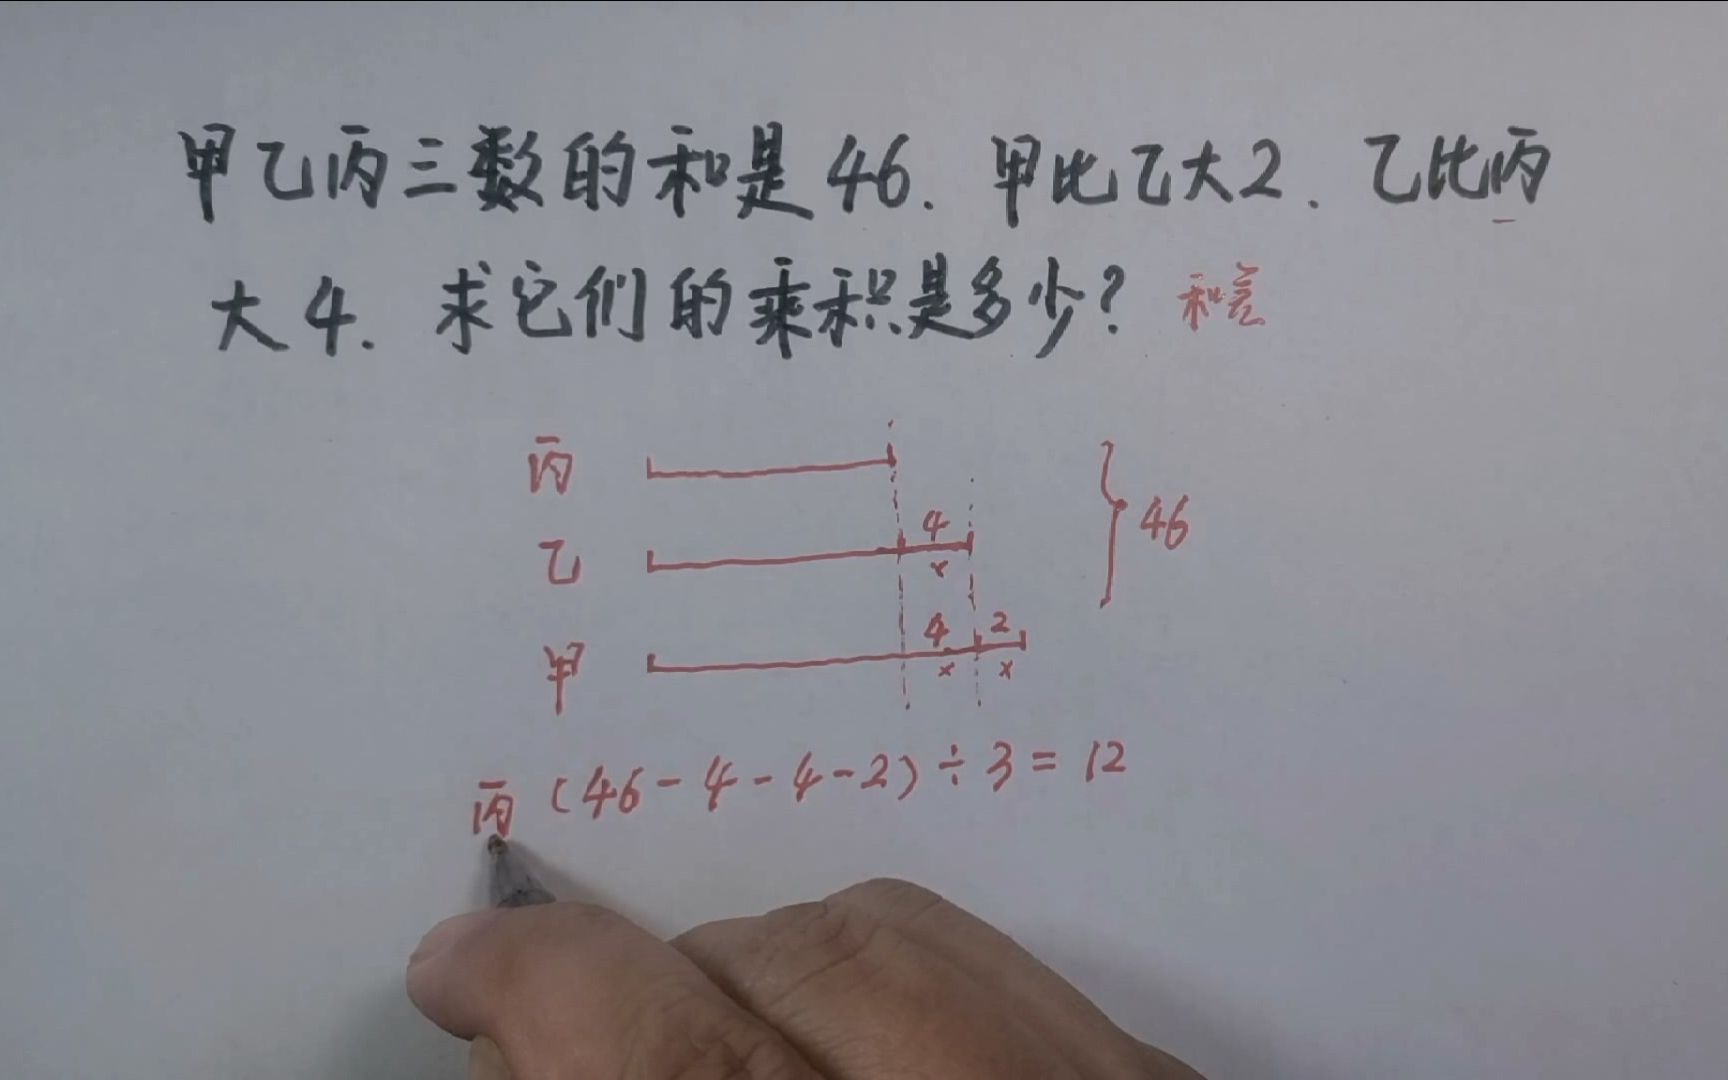 甲乙丙三数的和是46.甲比乙大2.乙比丙
大4.求它们的乘积是多少?和差
丙
4
乙
x
46
4 2
甲
x x
丙(46-4-4-2)÷3=12